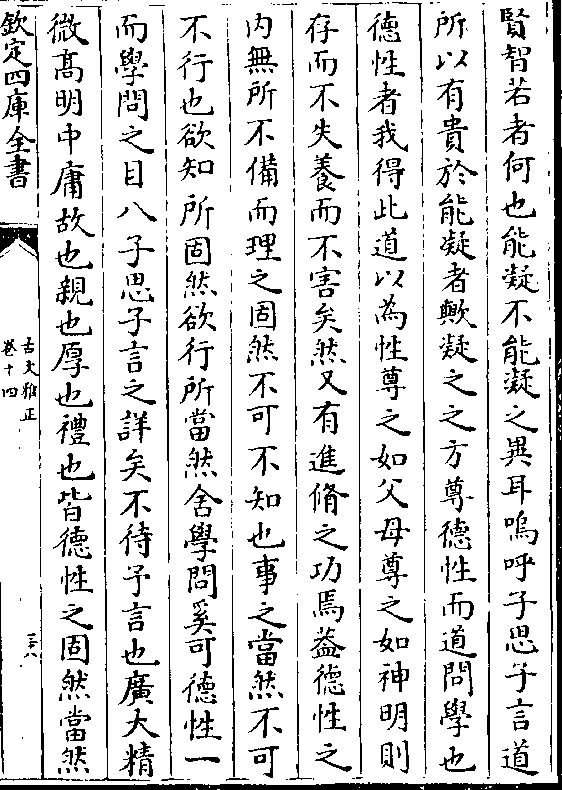 賢智若者何也能凝不能凝之異耳嗚呼子思子言道
所以有貴於能凝者歟凝之之方尊德性而道問學也
德性者我得此道以為性尊之如父母尊之如神明則
存而不失養而不害矣然又有進脩之功焉葢德性之
内無所不備而理之固然不可不知也事之當然不可
不行也欲知所固然欲行所當然舍學問奚可德性一
而學問之目八子思子言之詳矣不待予言也廣大精
微髙明中庸故也親也厚也禮也皆德性之固然當然
欽定四庫全書
古文雅正
卷十四
三十八